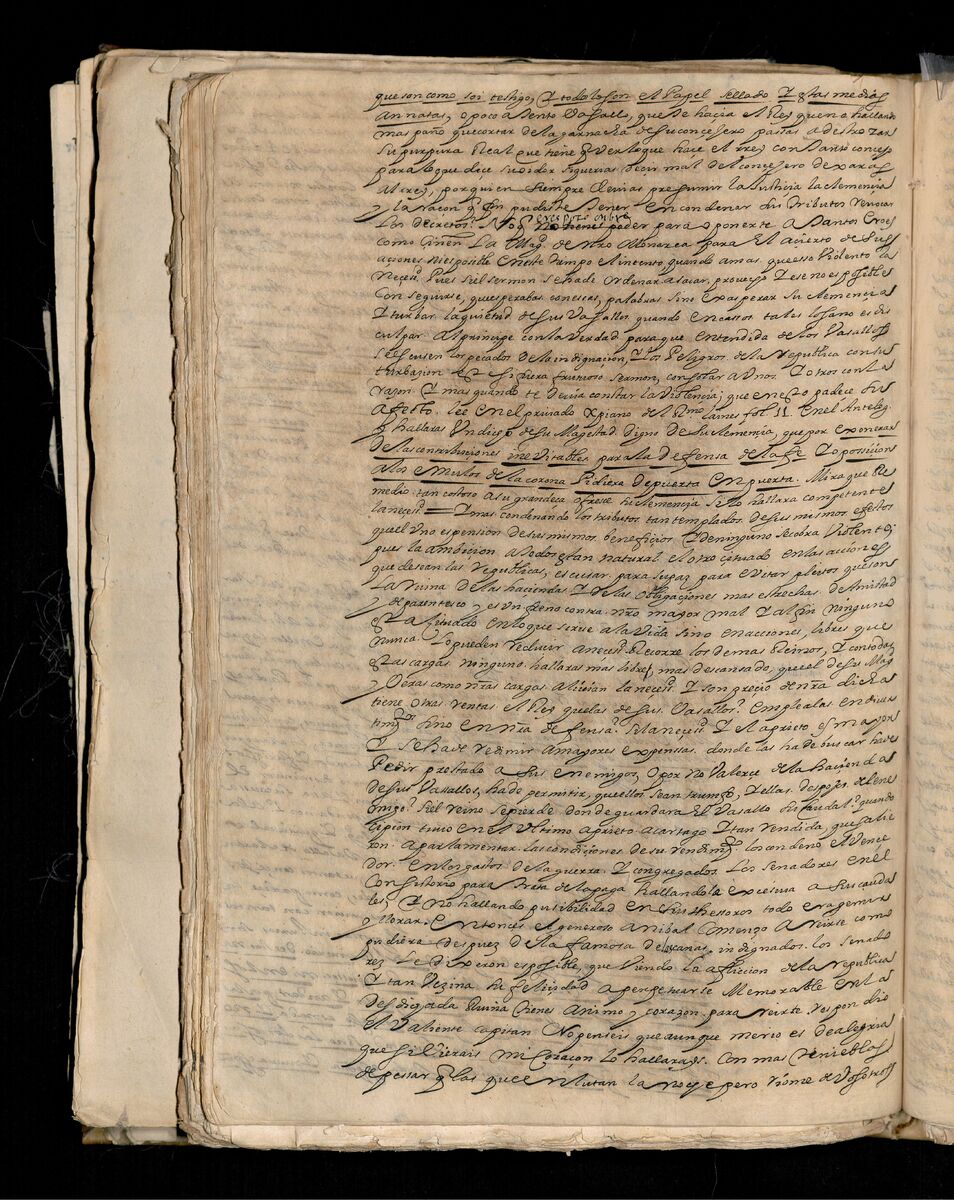 que son como soi testigo, y todo lo son el Papel sellado y estas medias
annatas, o poco atento Vasallo, que se hacia el Rei, que no hallando
mas paño que cortar de la garnacha de su consejero pasas a destrozar
su purpura Real que tiene q Ver lo que hace el rrei con tanto consejo
para lo que dice su oidor si querias decir mal del consejero dexaras
al rrei, por quien siempre devias presumir la Justicia la clemencia
y la racon q en pudiste tener en condenar sus tributos revocar
los Decretos?
como ciñen La Mag.d de nro Monarca para El acierto de sus
acciones ni es posible en este tiempo el intento quando amas que esso Violento la
neces.d Pues si el sermon se ha de ordenar a sacar provecho y ese no es posible
conseguirse, que esperabas con esas, palabras sino exasperar su clemencia
y turbar la quietud de sus Vasallos quando en casos tales lo sano es dis
culpar al principe con la verdad para que entendida de los Vasallos
se escusen los pecados de la indignacion, y los Peligros de la republica con su
turbacion esso si fuera fructuoso sermon, consolar a unos y otros con la
rason y mas quando te devia constar la violencia; que en esto padece su
afecto. lee en el privado Xpiano del Rmo lainez fol 11 en el Anteleg.
y hallaras Un dicho de su Magestad digno de su clemencia, que por exonerar
de las contribuciones inevitables, para la Defensa de la fe y oposicion
a los emulos de la corona Pidiera de puerta en puerta. Mira que Re
medio tan costoso a su grandeca ofrece su clemencia si lo hallara competente
la neces.d = y mas condenando los tributos tan templados de sus mismos efectos
que el Uno es pension de sus mismos beneficios y de ninguno se cobra Violente;
pues la ambicion a todos es tan natural el otro situado en las acciones
que desean las republicas, escusar para su paz para evitar pleitos que son
La ruina de las haciendas y de las obligaciones mas estrechas de Amistad
y de parentesco y es Un freno contra nro mayor mal y al fin ninguno
esta situado en lo que sirve a la Vida sino en acciones, libres que
nunca lo pueden reducir a neces.d Recorre los demas Reinos, y con todas
estas cargas ninguno hallaras mas libre, mas descansado, que el de su Mag
y Veras como nras cargas alivian la neces.d y son precio de nra dicha
tiene otras rentas el Rei, que las de sus Vasallos? empleanlas en diver
tim.tos sino en nra defensa? Si la neces.d y el aprieto es mayor
y se ha de redimir a mayores expensas. donde las ha de buscar ha de
Pedir prestado a sus enemigos, o por no Valerse de la hacienda
de sus Vasallos, ha de permitir, que ellos sean triumfo, y ellas despojos del ene
migo? si el reino se pierde donde guardara El Vasallo su caudal? quando
cipion tuvo en el Ultimo aprieto a cartago y tan rendida que salie
ron a parlamentar las condiciones de su rendim.to los condeno el Vence
dor en los gastos de la guerra y congregados los senadores en el
Consistorio para trata de la paga hallandola excesiva a sus cauda
les, y no hallando posibilidad en sus thesoros todo era gemir
y llorar. entonces el generoso anibal comenzo a reirse como
pudiera despues de la famosa de canas, indignados los senado
rez le dixeron es posible, que viendo la afliccion de la republica
y tan Vezina su felicidad a perpetuarse Memorable en la
desdicada Ruina tienes animo y corazon para reirte respondio
el Valiente capitan No penseis que aunque me rio es de alegria
que si Vierais mi coraçon lo hallarais. Con mas tinieblas
de pessar q las que enlutan la noche pero riome de Vosotros